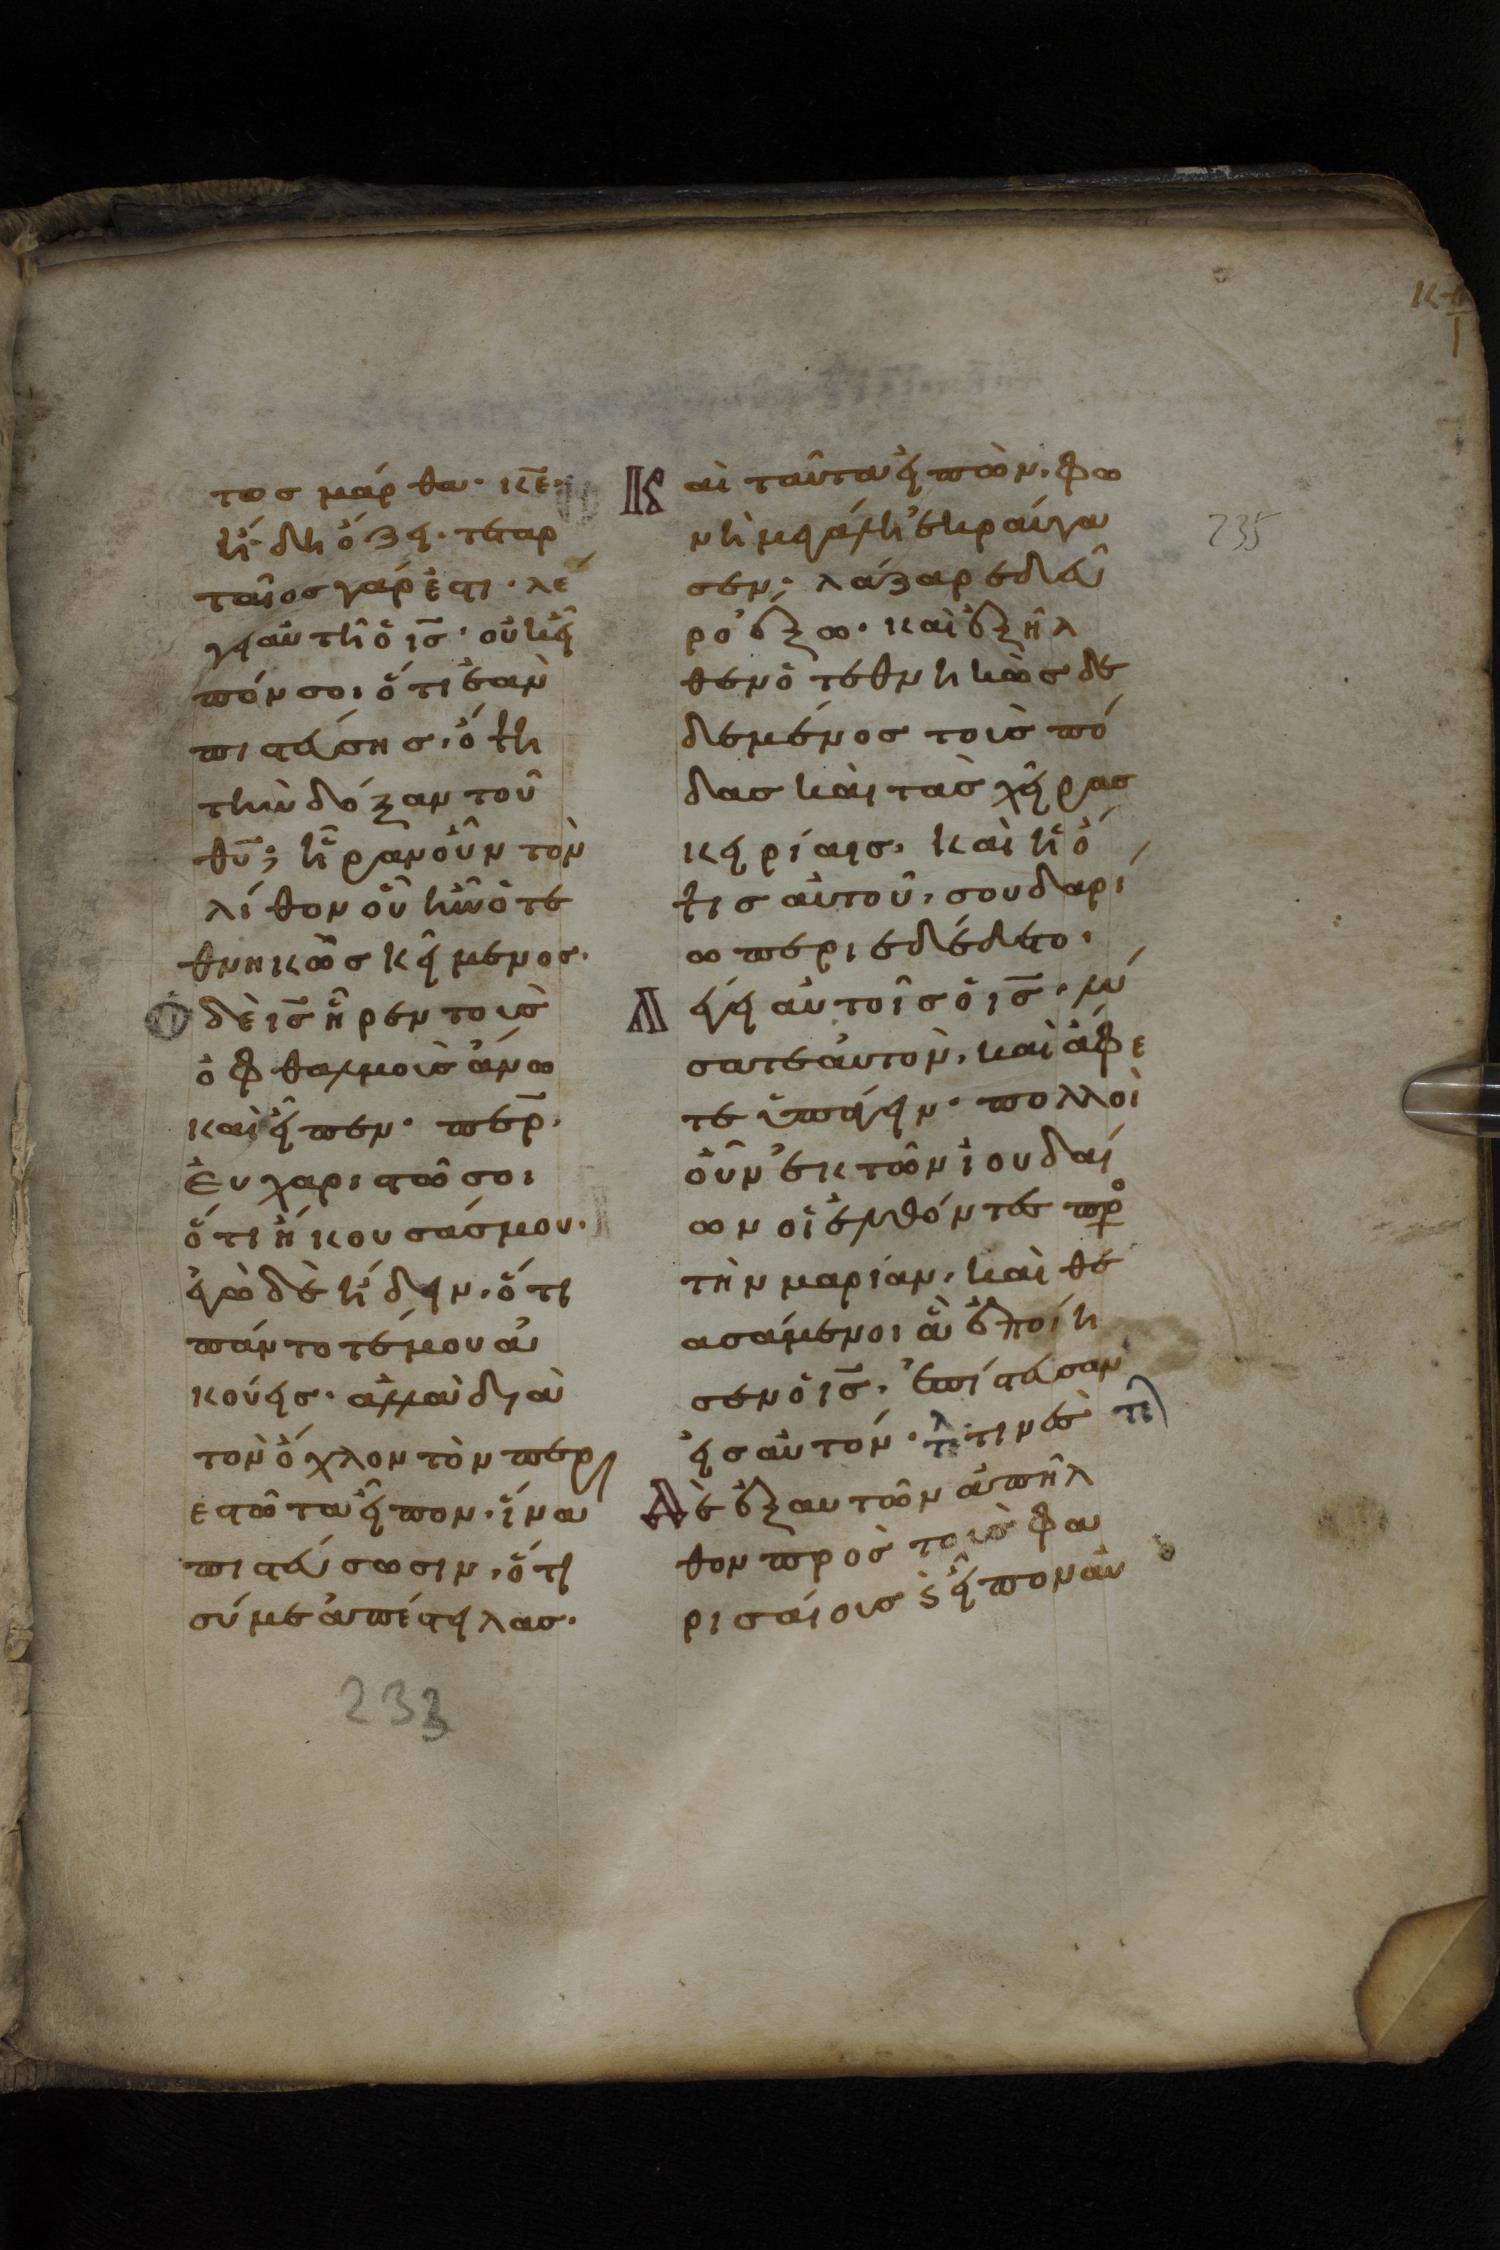 κε
ι
τος μάρθα· κ̅ε̅·
ἤδη ὄζει· τεταρ
ταῖος γάρ ἐστι· λέ
γει αὐτῆ ὁ ι̅ς̅· οὐκ εἶ
πόν σοι ὅτι ἐὰν
πιστεύσης, ὄψη
τὴν δόξαν τοῦ
θ̅υ̅; ἦραν οὖν τὸν
λίθον οὗ ἦν ὁ τε
θνηκὼς κείμενος·
Ὁ δὲ ι̅ς̅ ἦρεν τοὺς
ὀφθαλμοὺς ἄνω
καὶ εἶπεν· πε̅ρ̅·
Εὐχαριστῶ σοι
ὅτι ἤκουσάς μου·
ἐγὼ δὲ ἤδειν, ὅτι
πάντοτέ μου ἀ
κούεις· ἀλλὰ διὰ
τὸν ὄχλον τὸν περι
εστῶτα εἶπον· ἵνα
πιστεύσωσιν, ὅτι
σύ με ἀπέστειλας·
233
Καὶ ταῦτα εἰπὼν, φω
νῆ μεγάλη ἐκραύγα
σεν; λάζαρε δεῦ
ρο ἔξω· καὶ ἐξῆλ
θεν ὁ τεθνηκὼς δε
δεμένος τοὺς πό
δας καὶ τὰς χεῖρας
κειρίαις, καὶ ἡ ὄ
ψις αὐτοῦ, σουδαρί
ω περιεδέδετο·
Λέγει αὐτοῖς ὁ ι̅ς̅, λύ
σατε αὐτὸν, καὶ ἄφε
τε ὑπάγειν· πολλοὶ
οὖν ἐκ τῶν ἰουδαί
ων οἱ ἐλθόντες πρ
τὴν μαρίαν, καὶ θε
ασάμενοι ἃ ἐποίη
σεν ὁ ι̅ς̅, ἐπίστευσαν
εἰς αὐτόν· τλ τινὲς τλ
Δὲ ἐξ αυτῶν ἀπῆλ
θον πρὸς τοὺς φα
ρισαίους ϗ εἶπον αὐ
235